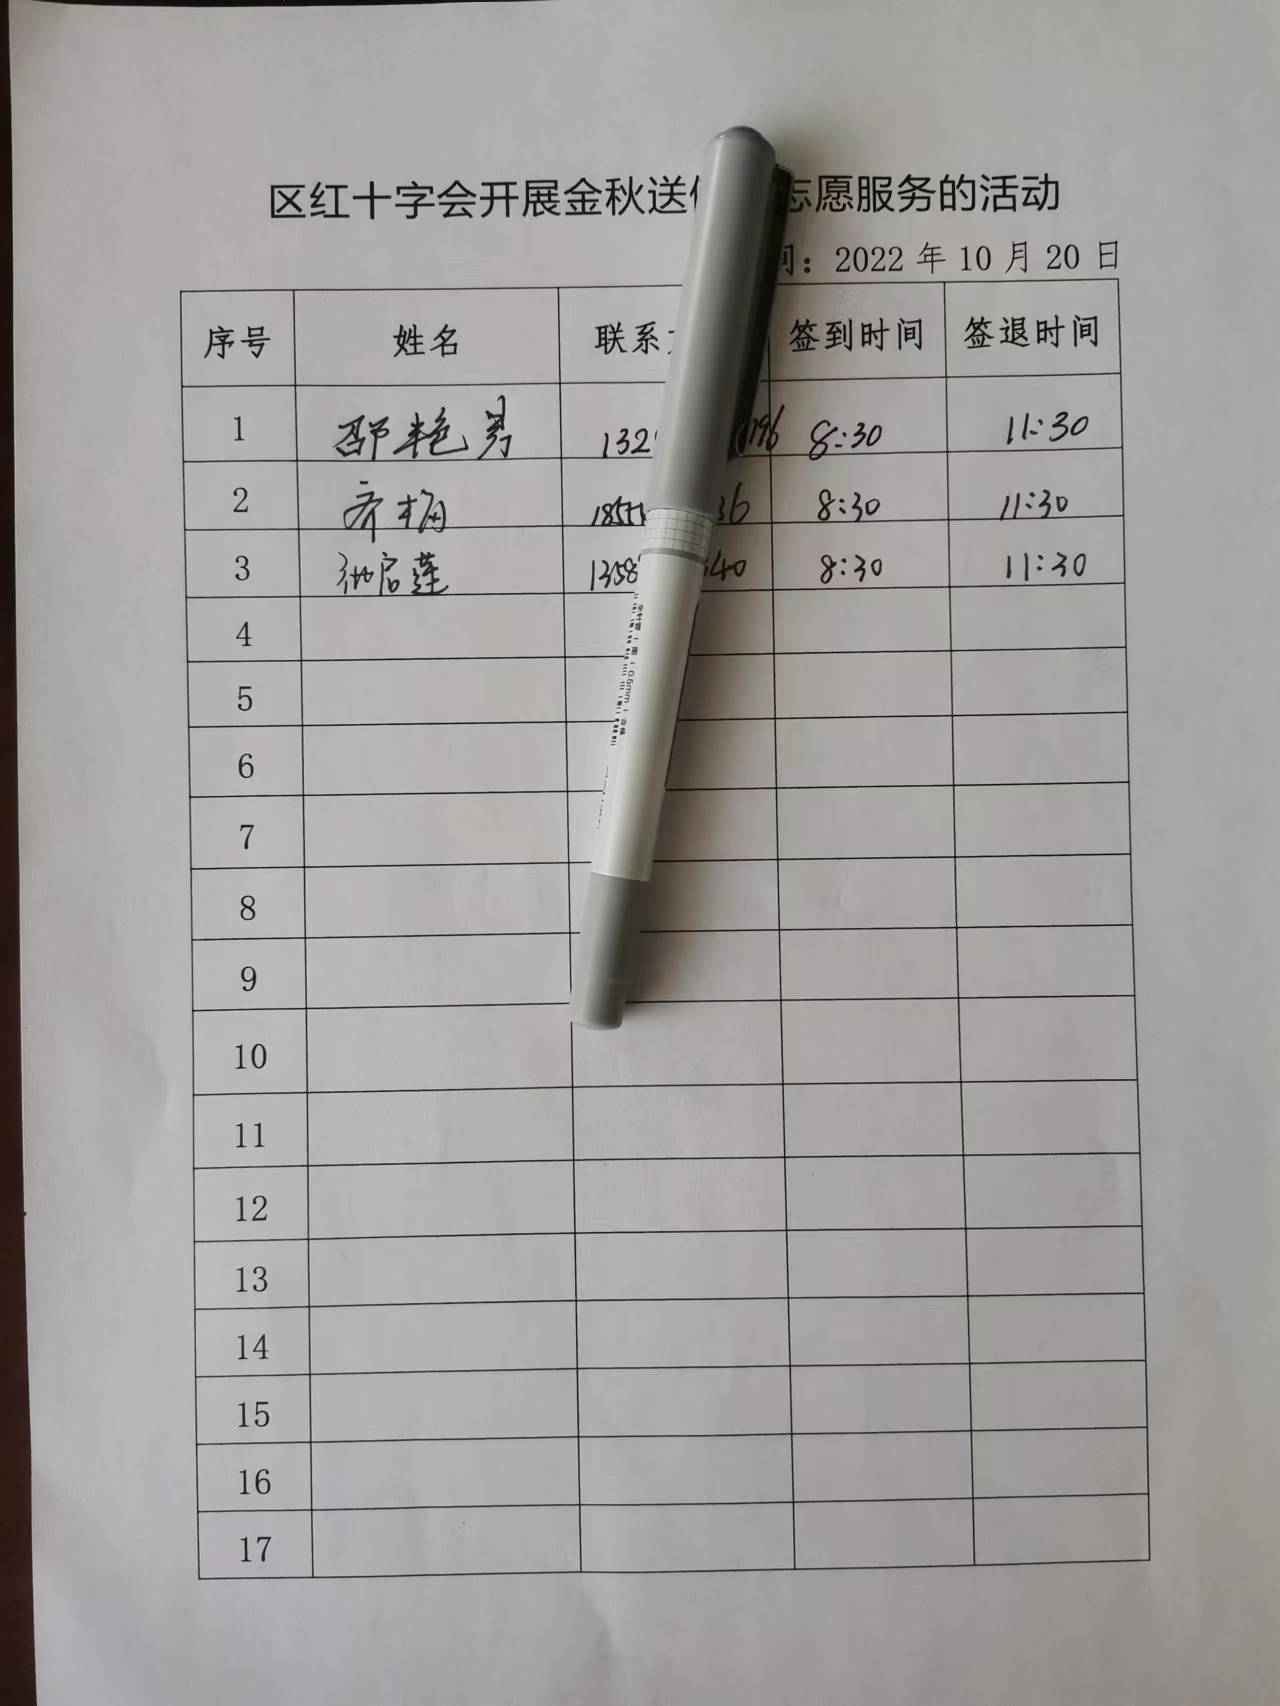 区红十字会开展金秋送 志愿服务的活动
间：2022 年 10 月 20 日
序号 姓名 联系 签到时间 签退时间
1 邵艳男 132 796 8:30 11:30
2 齐梅 185 36 8:30 11:30
3 启莲 1358 40 8:30 11:30
4
5
6
7
8
9
10
11
12
13
14
15
16
17
0.5mm